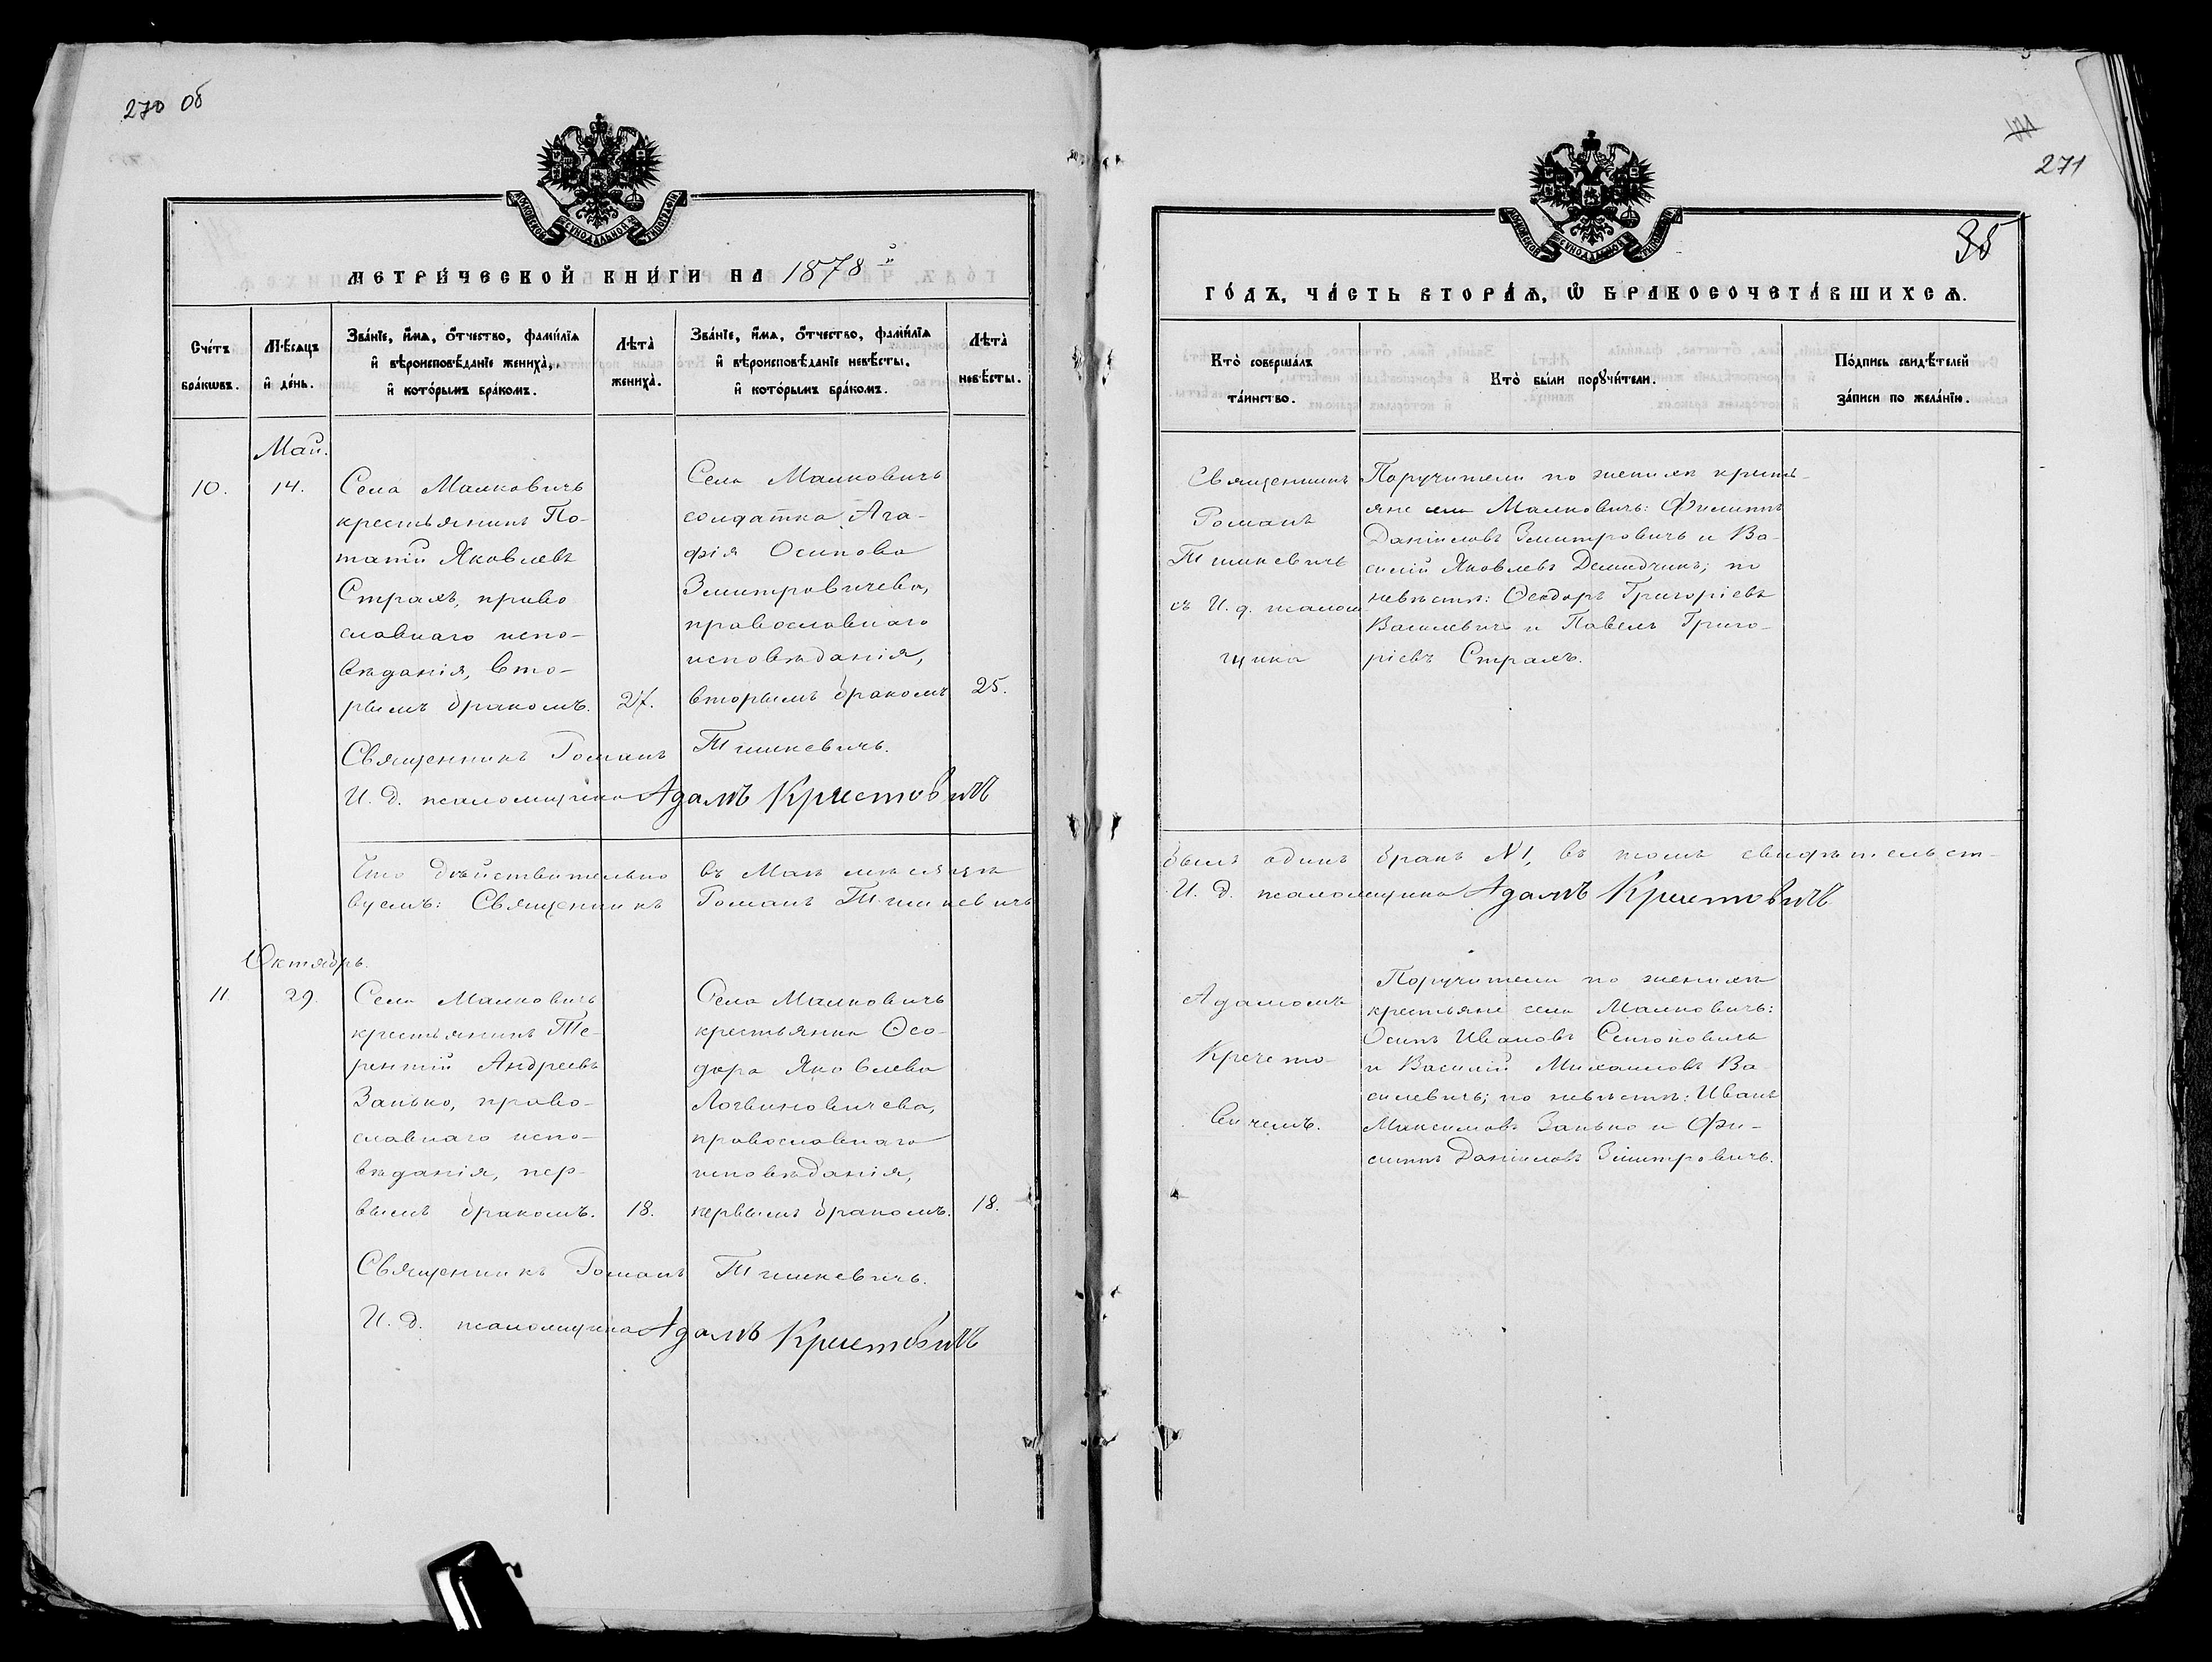 270 об
МОСКОВСКОЙ СѴНОДАЛЬНОЙ ТИПОГРАФІИ
МЕТРИ́ЧЕСКОЙ КНИ́ГИ НА 1878 й
Сче́тъ бра́кѡвъ.
Мѣ́сяцъ и҆ де́нь.
Зва́нїе, и҆́мѧ, ѻ҆́тчество, фамили́ѧ
и҆ вѣроисповѣ́данїе жениха̀,
и҆ кото́рымъ бра́комъ.
Лѣта̀ жениха̀.
Зва́нїе, и҆́мѧ, ѻ҆́тчество, фамили́ѧ
и҆ вѣроисповѣ́данїе невѣ́сты,
и҆ кото́рымъ бра́комъ.
Лѣта̀ невѣ́сты.
Май.
10.
14.
Села Малковичъ
крестьянинъ По-
тапій Яковлевъ
Страхъ, право
славнаго испо-
вѣданія, вто-
рымъ бракомъ.
27.
Села Малковичъ
солдатка Ага-
фія Осипова
Змитровичева,
православнаго
исповѣданія,
вторымъ бракомъ
25.
Священникъ Романъ Тышкевичъ.
И. д. псаломщика Адамъ Кречетовичъ
Что дѣйствительно въ Маѣ мѣсяцѣ
вуемъ: Священникъ Романъ Тышкевичъ
Октябрь.
11.
29.
Села Малковичъ
крестьянинъ Те-
рентій Андреевъ
Занько, право-
славнаго испо-
вѣданія, пер-
вымъ бракомъ.
18.
Села Малковичъ
крестьянка Ѳео-
дора Яковлева
Логвиновичева,
православнаго
исповѣданія,
первымъ бракомъ.
18.
Священникъ Романъ Тышкевичъ.
И. д. псаломщика Адамъ Кречетовичъ
271
35
МОСКОВСКОЙ СѴНОДАЛЬНОЙ ТИПОГРАФІИ
ГО́ДЪ, ЧА́СТЬ ВТОРА́Ѧ, Ѽ БРАКОСОЧЕТА́ВШИХСѦ.
Кто̀ соверша́лъ
та́инство.
Кто̀ бы́ли порꙋчи́тели.
По́дпись свидѣ́телей
за́писи по жела́нїю.
Священникъ
Романъ
Тышкевичъ
съ И. д. псалом
щика
Поручители по женихѣ кресть-
яне села Малковичъ: Филиппъ
Даніиловъ Змитровичъ и Ва-
силій Яковлевъ Демидчикъ; по
невѣстѣ: Ѳеодоръ Григоріевъ
Василевичъ и Павелъ Григо-
ріевъ Страхъ.
былъ одинъ бракъ №1, въ томъ свидѣтельст-
И. д. псаломщика Адамъ Кречетовичъ
Адамомъ
Кречето-
вичемъ.
Поручители по женихѣ
крестьяне села Малковичъ:
Осипъ Ивановъ Сенюковичъ
и Василій Михаиловъ Ва
силевичъ; по невѣстѣ: Иванъ
Максимовъ Занько и Фи-
липпъ Даніиловъ Змитровичъ.